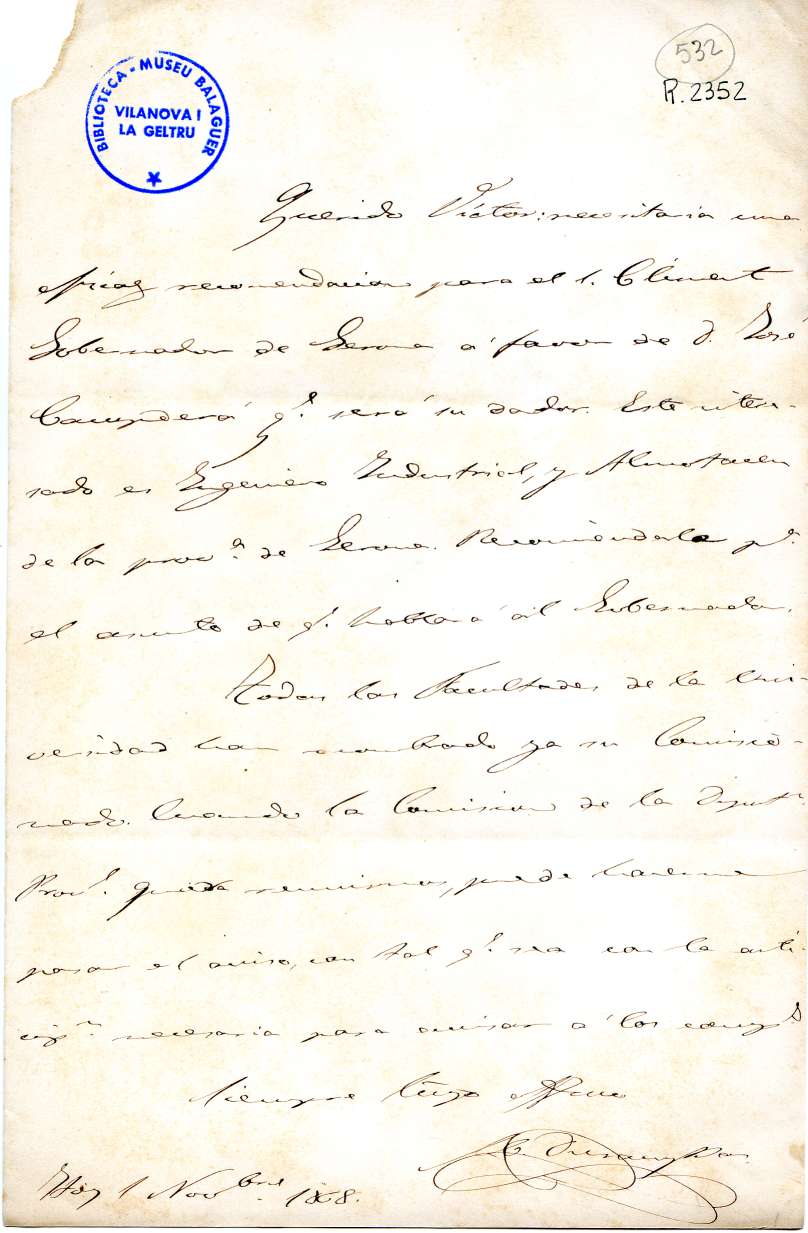 532
R. 2352
BIBLIOTECA - MUSEU BALAGUER
VILANOVA I
LA GELTRU
Querido Víctor: necesitaria una
eficaz recomendacion para el S. Climent
Gobernador de Gerona á favor de D. José
Campderá q.e será su dador. Este intere-
sado es Yngeniero Yndustrial, y Almotacen
de la prov.a de Gerona. Recomiéndale p.a
el asunto de q.e hablará al Gobernador.
Todas las Facultades de la Uni-
versidad han nombrado ya su Comisio-
nado. Cuando la Comision de la Diput.n
Prov.l quiera reunirnos, puede hacerme
pasar el aviso, con tal q.e sea con la anti-
cip.n necesaria para avisar á los comp.s
Siempre tuyo affmo
Duran y Bas
Hoy 1 Nov.bre 1868.